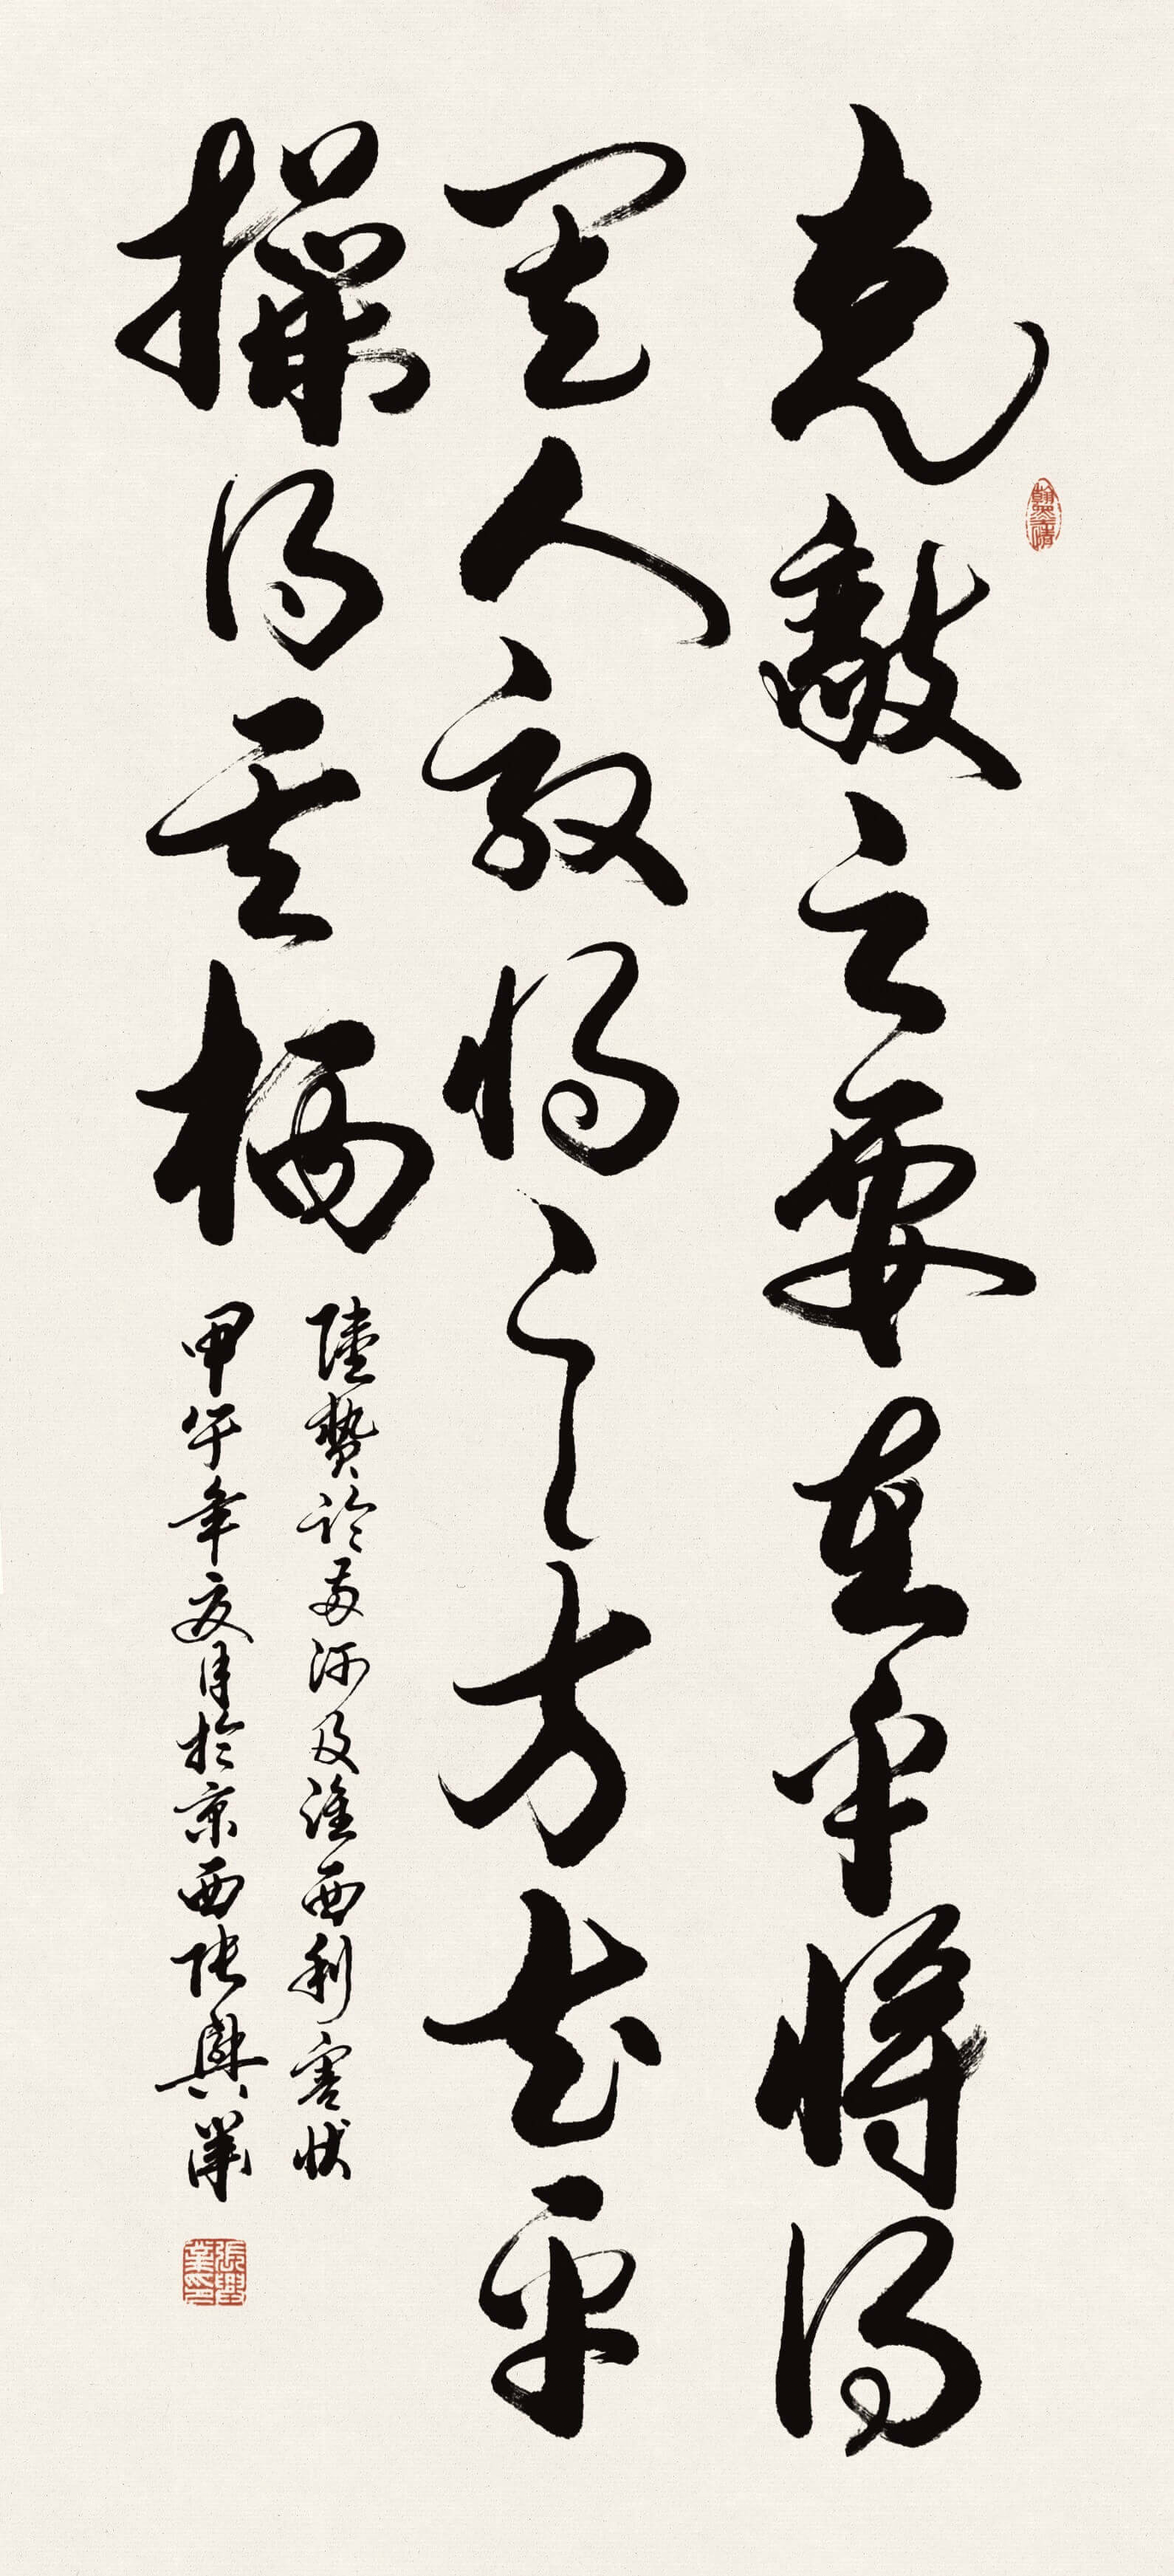 克敵之要在乎將得
其人馭將之方在乎
操得其柄
陸贄論兩河及淮西利害狀
甲午年夏月於京西張興業
張興業印